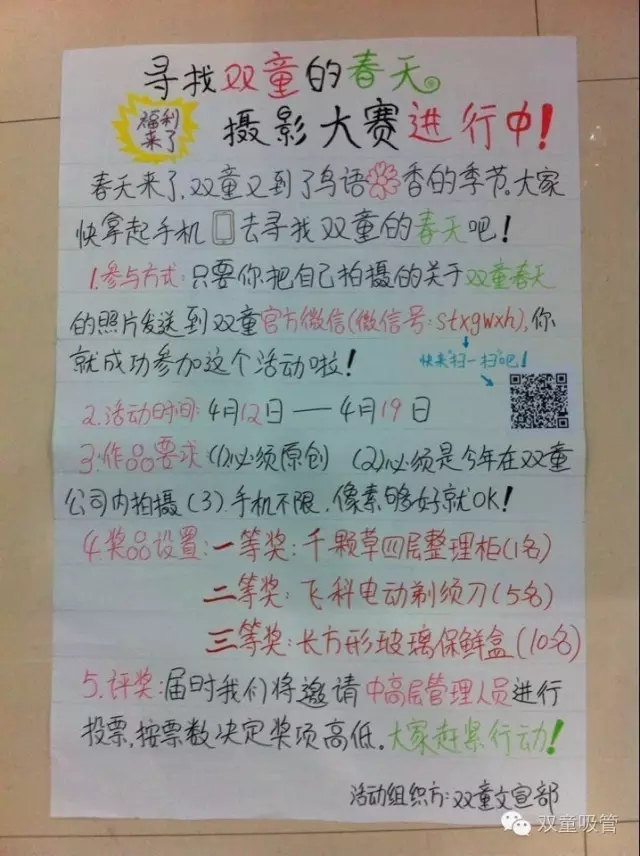 寻找双童的春天。
福利来了
摄影大赛进行中!
春天来了,双童又到了鸟语香的季节。大家
快拿起手机去寻找双童的春天吧!
1.参与方式:只要你把自己拍摄的关于双童春天
的照片发送到双童官方微信(微信号:stxgwxh),你
就成功参加这个活动啦!
快来“扫一扫”吧!
2.活动时间:4月12日——4月19日
3.作品要求(1)必须原创 (2)必须是今年在双童
公司内拍摄(3)手机不限,像素够好就OK!
4.奖品设置:一等奖:千颗草四层整理柜(1名)
二等奖:飞科电动剃须刀(5名)
三等奖:长方形玻璃保鲜盒(10名)
5.评奖:届时我们将邀请中高层管理人员进行
投票,按票数决定奖项高低。大家赶紧行动!
活动组织方:双童文宣部
双童吸管